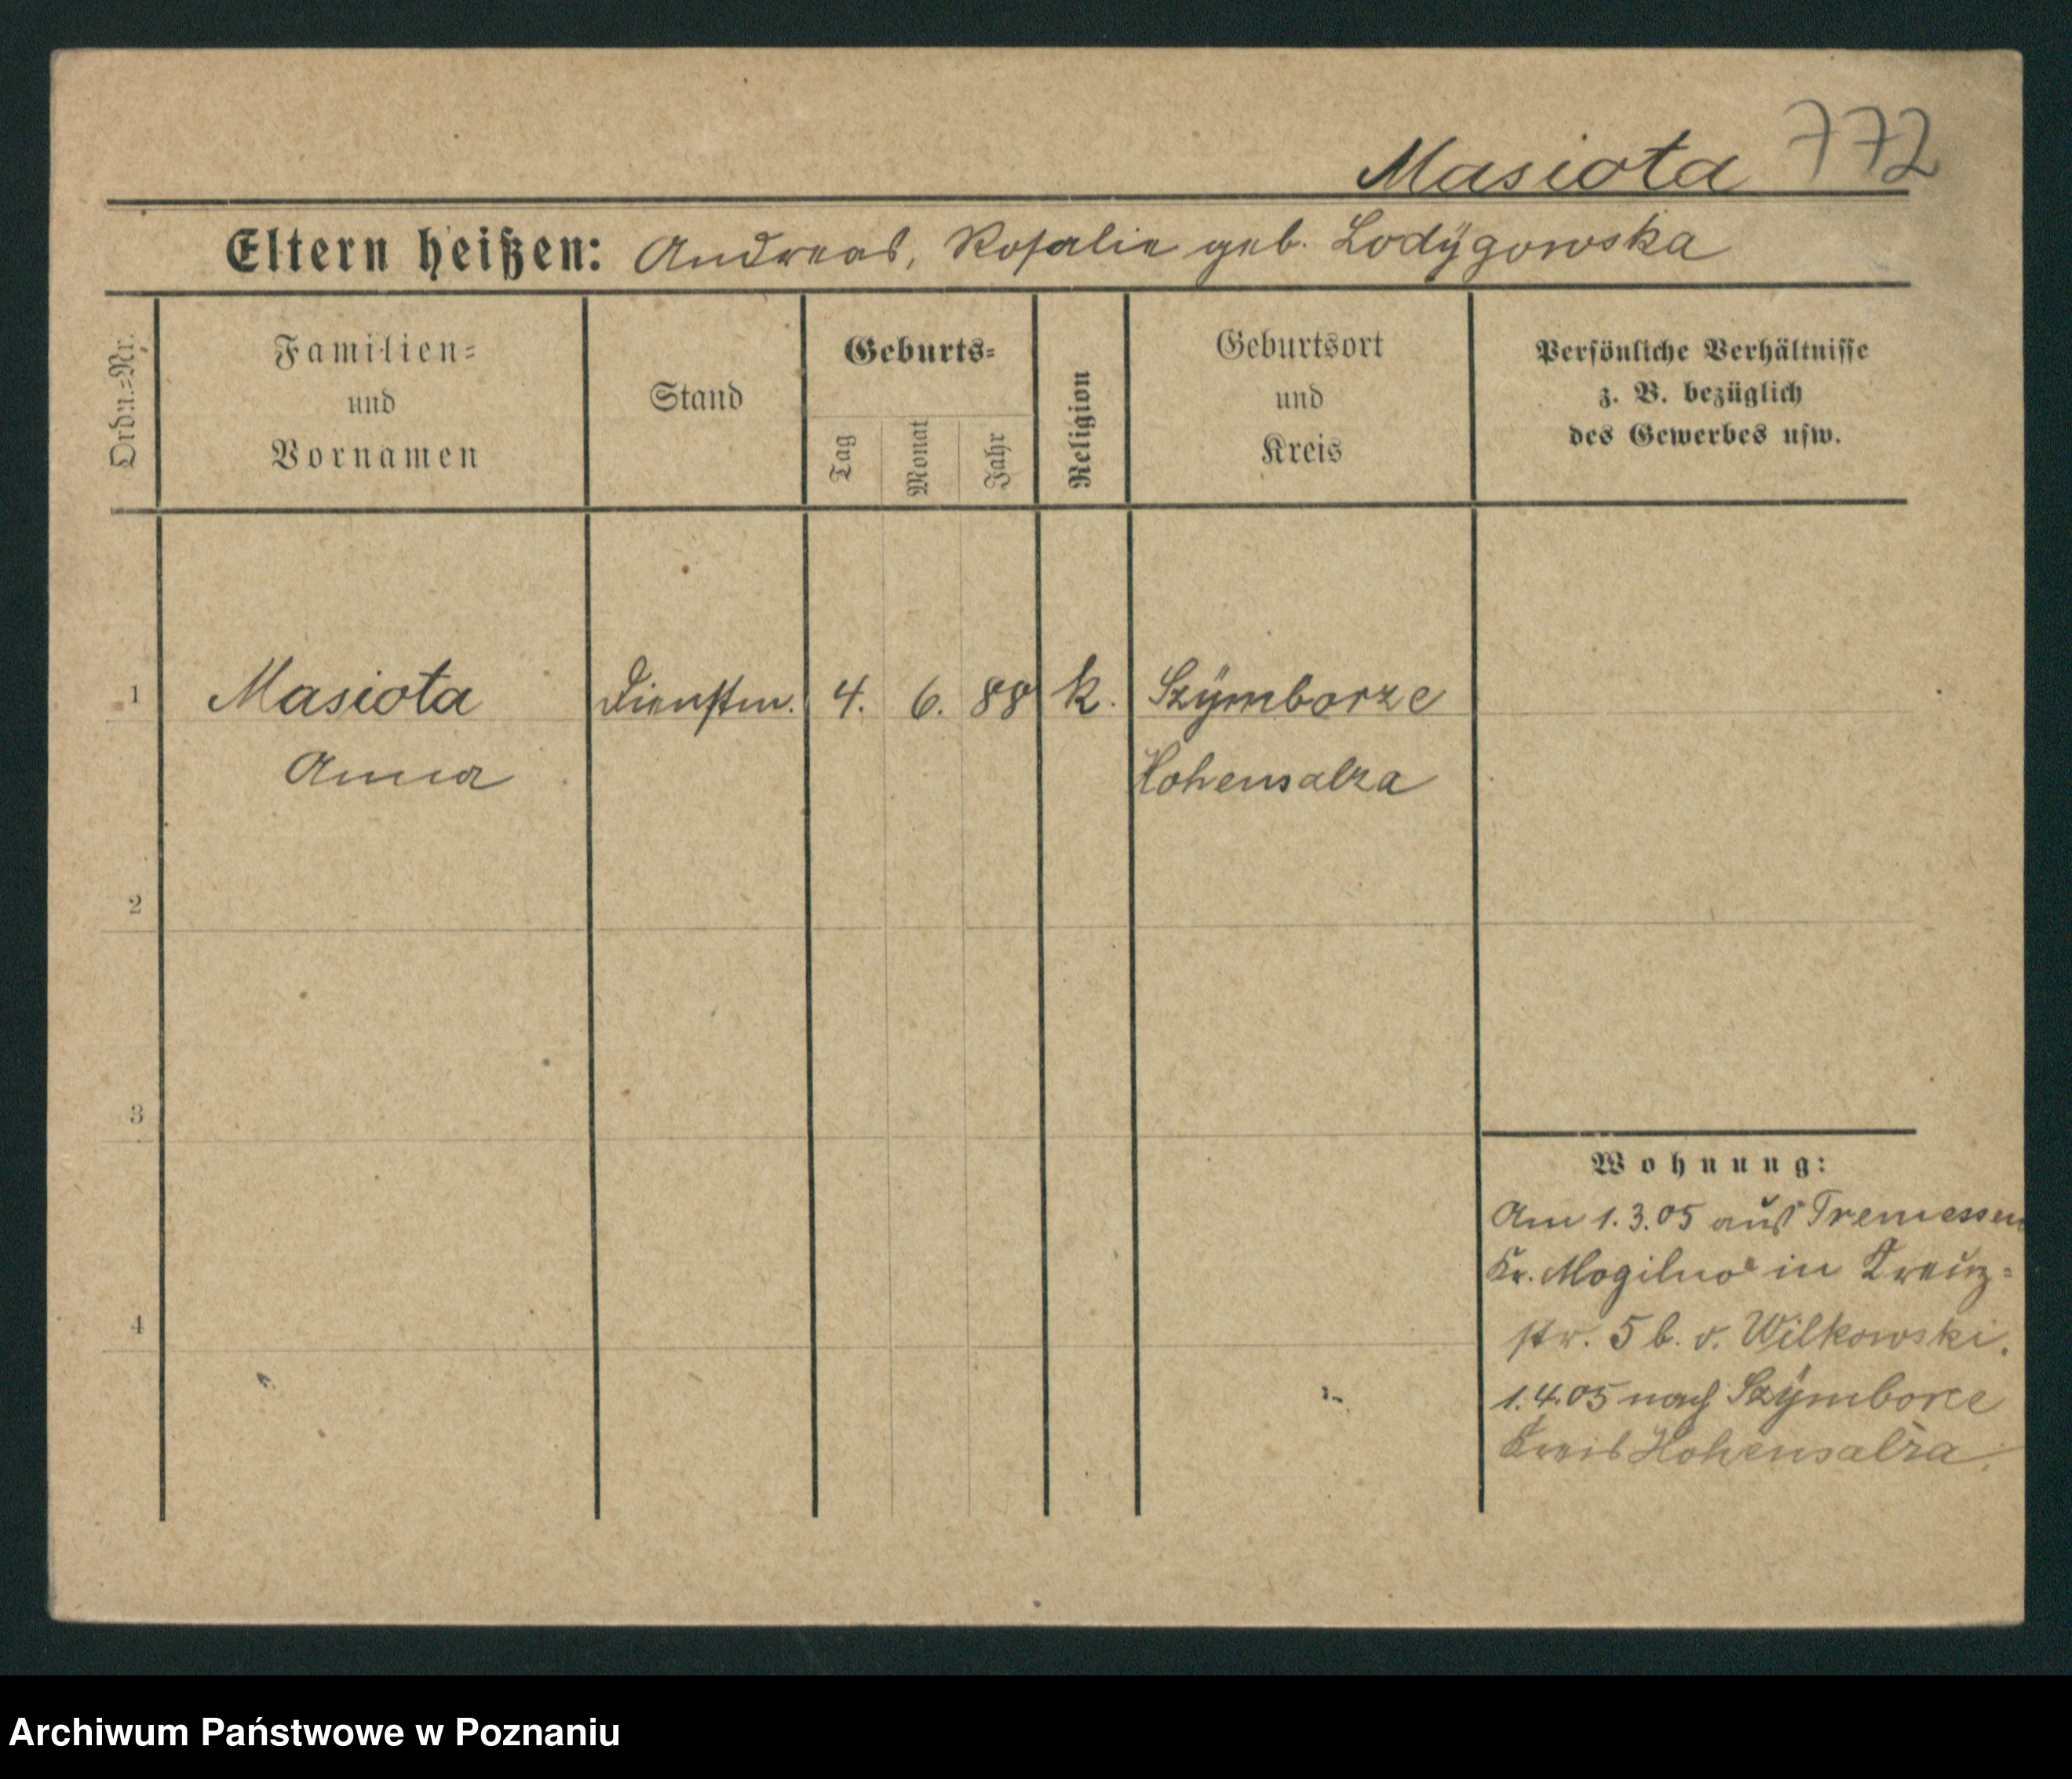 Masiota 772
Eltern heißen: Andreas, Rosalie geb. Lodÿgowska
Ordn.=Nr.
Familien=
und
Vornamen
Stand
Geburts=
Tag
Monat
Jahr
Religion
Geburtsort
und
Kreis
Persönliche Verhältnisse
z. B. bezüglich
des Gewerbes usw.
1 Masiota Dienstm. 4. 6. 88 k. Szÿmborze
Anna Hohensalza
2
3
4
Wohnung:
Am 1.3.05 aus Tremessen
Kr. Mogilno in Kreuz=
str. 5 b. v. Wilkowski.
1.4.05 nach Szÿmborze
Kreis Hohensalza.
Archiwum Państwowe w Poznaniu